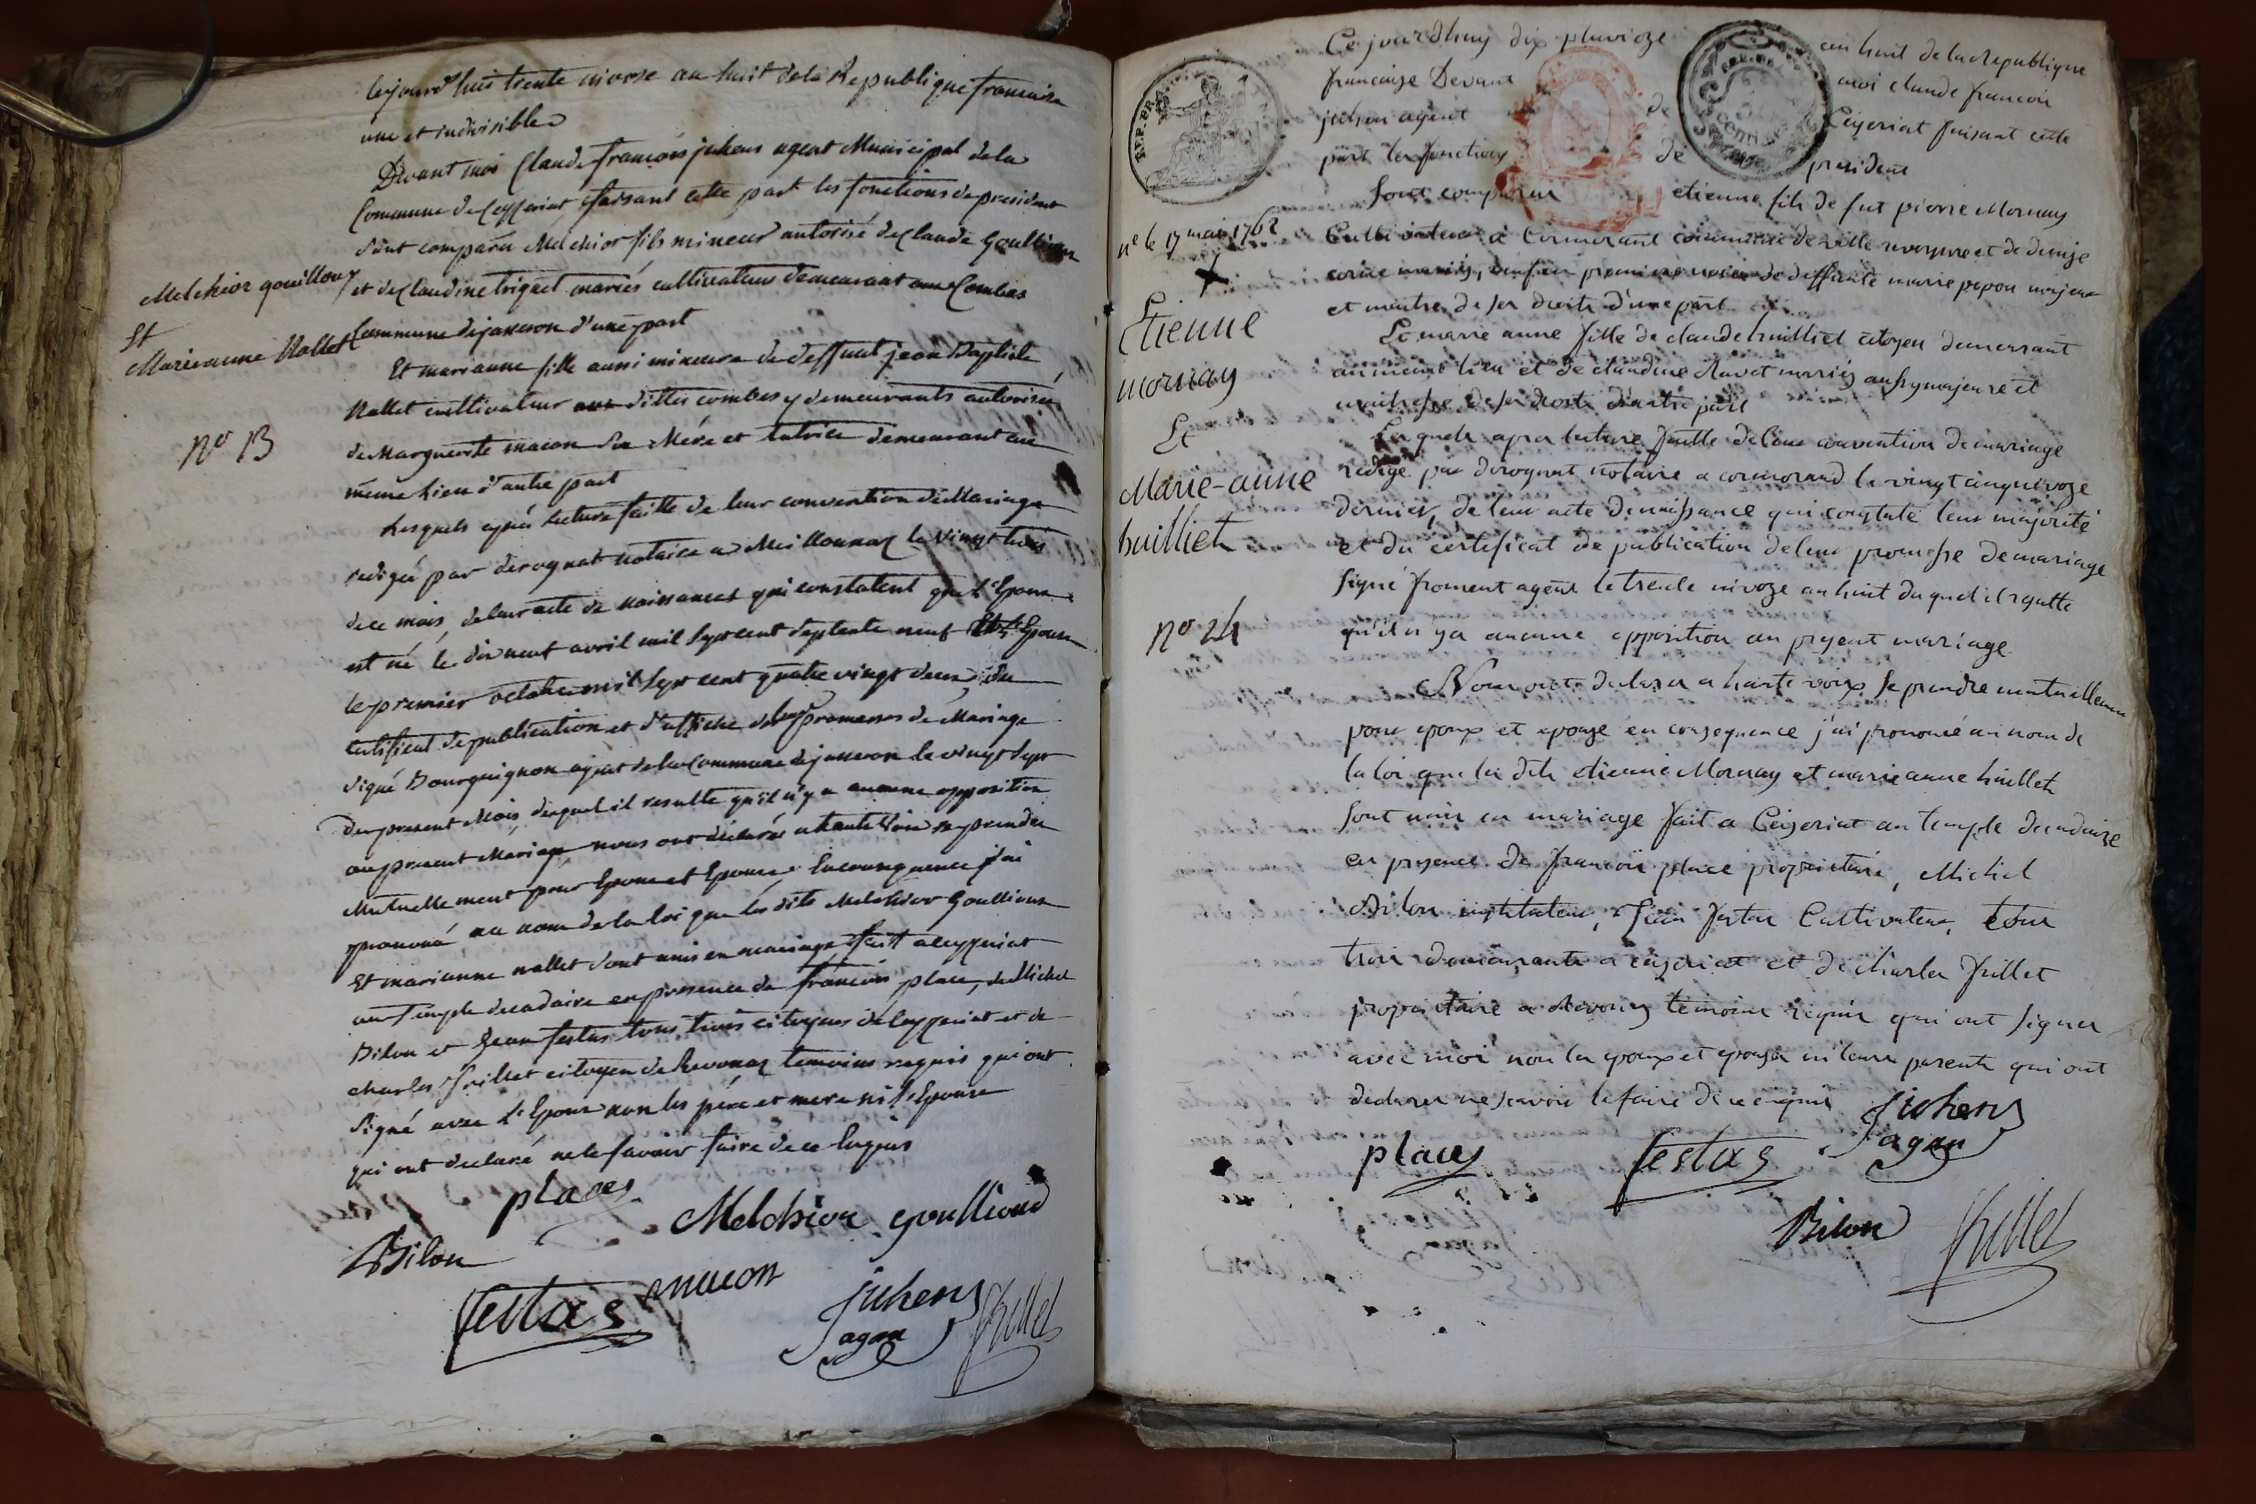 Cejourd'huis trente nivose an huit de la Republique francaise
une et indivisible
Devant moi Claude françois juhens agent Municipal de la
Commune de Ceyseriat faisant cette part les fonctions de president
Sont comparu Melchior fils mineur autorisé de Claude Goullioux
et de Claudine triquet mariés cultivateurs demeurant aux Combes
Commune de jasseron d'une part
Et marianne fille aussi mineure de deffunt jean Baptiste
Nallet cultivateur aux dittes combes y demeurants autorisée
de Marguerite macon sa Mére et tutrice demeurant au
méme Lieu d'autre part
Lesquels après lecture faitte de leur convention de Mariage
redigée par derognat notaire a Meillonnaz le vingt trois
de ce mois, de leur acte de naissances qui constatent que l'Epoux
est né le dix neuf avril mil sept cent septente neuf Et l'Epouse
le premier octobre mil sept cent quatre vingt deux, du
certificat de publication et d'affiche de leurs promesses de Mariage
signé Bourguignon agent de la Commune de jasseron le vingt sept
du present Mois, duquel il resulte qu'il n'y a aucune opposition
au present Mariage nous ont déclarés a haute voix se prendre
Mutuellement pour Epoux et Epouse. En consequence j'ai
prononcé au nom de la loi que les dits Melchior Goullioux
Et marianne nallet sont unis en mariage fait a Ceyzeriat
au Temple decadaire en presence de françois place, de Michel
Bilon et Jean festas tous trois citoyens de Ceyzeriat et de
charles juillet citoyen de Revonnaz temoins requis qui ont
signé avec l'Epoux non les pére et mere ni l'Epouse
qui ont declaré ne le savoir faire de ce Enquis
places
Melchior goullioud
Bilon
festas
macon
juhens
agent
Melchior gouilloux
Et
Marieanne Nallet
N° 13
Ce jourdhuy dix pluvioze an huit de la republique
francaize Devant moi claude francois
juhen agent de Ceyzeriat faisant cette
part les fonctions de president
Sont comparus etienne fils de fut pierre Mornay
Cultivateur a Cormorant commune de ville reversure et de denize
mariés, veuf en premiere noces de deffunte marie pepon majeur
et maitre de ses droits d'une part
Et marie anne fille de claude huilliet citoyen demeurant
au meme lieu et de claudine Ravet mariés aussy majeure et
maitresse de ses droits d'autre part
Lesquels apres lecture faitte de leur convention de mariage
redigé par derognat notaire a cormorand le vingt cinq nivoze
dernier, de leur acte de naissance qui constate leur majorité
et du certificat de publication de leur promesse de mariage
signé froment agent le trente nivoze an huit du quel il rezulte
qu'il n'y a aucune opposition au prezent mariage
Nous ont declarer a haute voix se prendre mutuellement
pour epoux et epouze en consequence j'ai prononcé au nom de
la loi que les dits etienne Mornay et marie anne huillet
sont unis en mariage fait a Ceizeriat au temple decadaire
en presence de francois place proprietaire, Michel
Bilon instituteur, Jean festas Cultivateur, tous
trois demeurants a ceizeriat et de charles juillet
proprietaire a Revonas temoins requis qui ont signer
avec moi non les epoux et epouze ni leurs parents qui ont
declarer ne scavoir le faire de ce enquis
places
festas
juhens
agent
Bilon
né le 17 mai 1762
Etienne
mornay
Et
Marie-anne
huilliet
N° 14